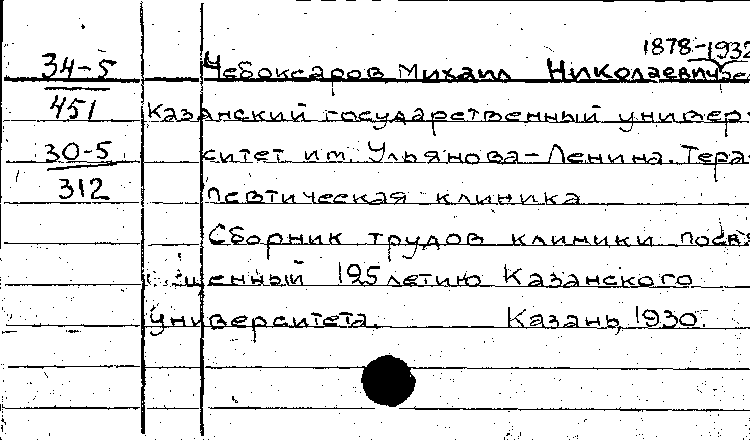 1878-1932
34-5 Чебоксаров Михаил Николаевич
451 Казанский государственный универ-
30-5 ситет им. Ульянова-Ленина. Тера-
312 певтическая клиника
Сборник трудов клиники посвя
щенный 125летию Казанского
университета. Казань, 1930.